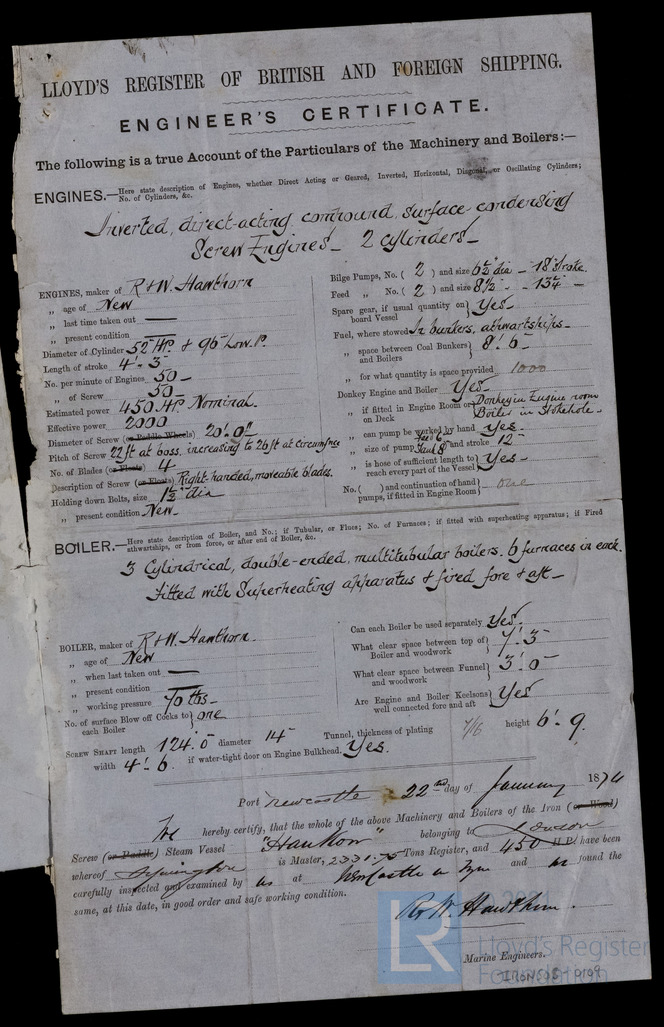 LLOYD'S REGISTER OF BRITISH AND FOREIGN SHIPPING.
ENGINEER'S CERTIFICATE.
The following is a true Account of the Particulars of the Machinery and Boilers:—
ENGINES.—Here state description of Engines, whether Direct Acting or Geared, Inverted, Horizontal, Diagonal, or Oscillating Cylinders;
No. of Cylinders, &c.
Inverted, direct-acting, compound, surface condensing
Screw Engines — 2 cylinders —
ENGINES, maker of R & W. Hawthorn
„ age of New
„ last time taken out —
„ present condition —
Diameter of Cylinder 52" H.P. & 96" Low. P.
Length of stroke 4'. 3"
No. per minute of Engines 50 —
„ of Screw 50 —
Estimated power 450 HP Nominal.
Effective power 2000
Diameter of Screw (or Paddle Wheels) 20'. 0"
Pitch of Screw 22ft at boss, increasing to 26ft at circumfnce
No. of Blades (or Floats) 4
Description of Screw (or Floats) Right-handed, moveable blades.
Holding down Bolts, size 1½" dia
„ present condition New —
Bilge Pumps, No. ( 2 ) and size 6½" dia — 18" stroke.
Feed „ No. ( 2 ) and size 8½ " — 13½ —
Spare gear, if usual quantity on
board Vessel } Yes —
Fuel, where stowed In bunkers, athwartships —
„ space between Coal Bunkers
and Boilers } 8'. 6" —
„ for what quantity is space provided 1000
Donkey Engine and Boiler Yes —
„ if fitted in Engine Room or
on Deck } Donkey in Engine room
Boiler in Stokehole —
„ can pump be worked by hand Yes —
„ size of pump Feed 6" Tank 8" and stroke 12" —
„ is hose of sufficient length to
reach every part of the Vessel } Yes —
No. ( ) and continuation of hand
pumps, if fitted in Engine Room } one
BOILER.—Here state description of Boiler, and No.; if Tubular, or Flues; No. of Furnaces; if fitted with superheating apparatus; if Fired
athwartships, or from force, or after end of Boiler, &c.
3 Cylindrical, double-ended, multitubular boilers. 6 furnaces in each.
Fitted with Superheating apparatus & fired fore & aft —
BOILER, maker of R & W. Hawthorn.
„ age of New
„ when last taken out —
„ present condition —
„ working pressure 70 lbs —
No. of surface Blow off Cocks to
each Boiler } one
Can each Boiler be used separately Yes.
What clear space between top of
Boiler and woodwork } 7'. 3"
What clear space between Funnel
and woodwork } 3'. 0"
Are Engine and Boiler Keelsons
well connected fore and aft } Yes
SCREW SHAFT length 124'. 0" diameter 14" Tunnel, thickness of plating 7/16 height 6'. 9.
width 4'. 6 if water-tight door on Engine Bulkhead. Yes.
Port Newcastle 22nd day of January 1874
We hereby certify, that the whole of the above Machinery and Boilers of the Iron (or Wood)
Screw (or Paddle) Steam Vessel "Hankow" belonging to London
whereof is Master, 2331.75 Tons Register, and 450 H.P. have been
carefully inspected and examined by us at Newcastle on Tyne and we found the
same, at this date, in good order and safe working condition.
R & W. Hawthorn.
Marine Engineers.
LR
Lloyd's Register
Foundation